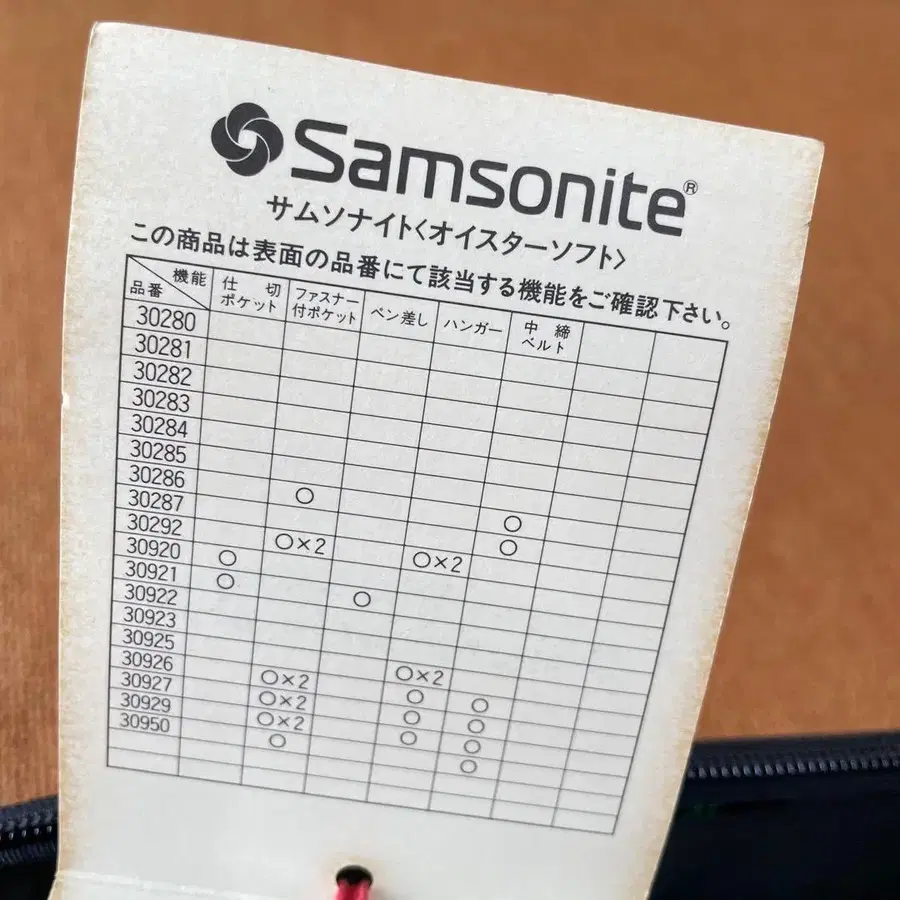 Samsonite®
サムソナイト〈オイスターソフト〉
この商品は表面の品番にて該当する機能をご確認下さい。
品番 機能 仕切ポケット ファスナー付ポケット ペン差し ハンガー 中締ベルト
30280
30281
30282
30283
30284
30285
30286 ○ ○
30287 ○
30292 ○×2 ○×2
30920 ○
30921 ○ ○
30922
30923
30925 ○×2
30926 ○×2 ○ ○
30927 ○×2 ○ ○
30929 ○×2 ○ ○
30950 ○ ○